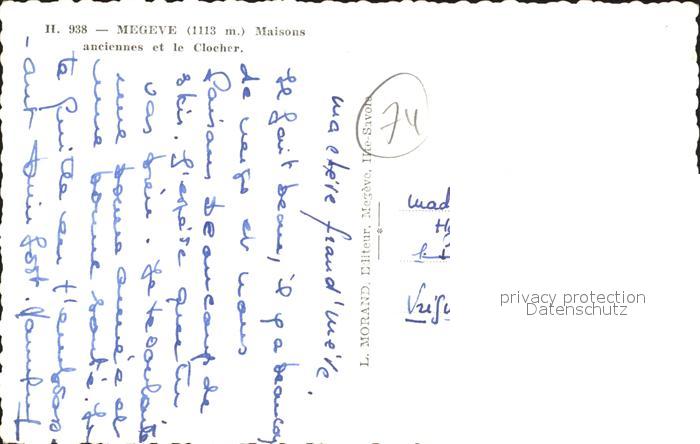 H. 938 — MEGEVE (1113 m.) Maisons
anciennes et le Clocher.
ma chère grand'mère.
Il fait beau, il y a beaucoup
de neige et nous
faisons beaucoup de
skis. J'espère que tu
vas bien. Je te souhaite
une bonne année et
une bonne santé. Je
te quitte en t'embrassant
bien fort.
L. MORAND, Editeur, Megève, Hte-Savoie
74
Mad
privacy protection
Datenschutz